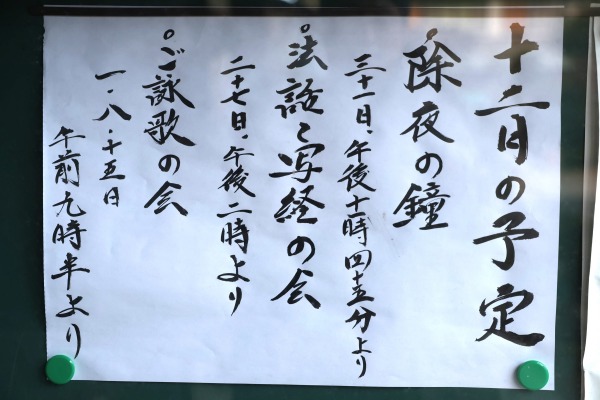 十二月の予定
○除夜の鐘
三十一日、午後十一時四十五分より
○法話と写経の会
二十七日、午後二時より
○ご詠歌の会
一・八・十五日
午前九時半より